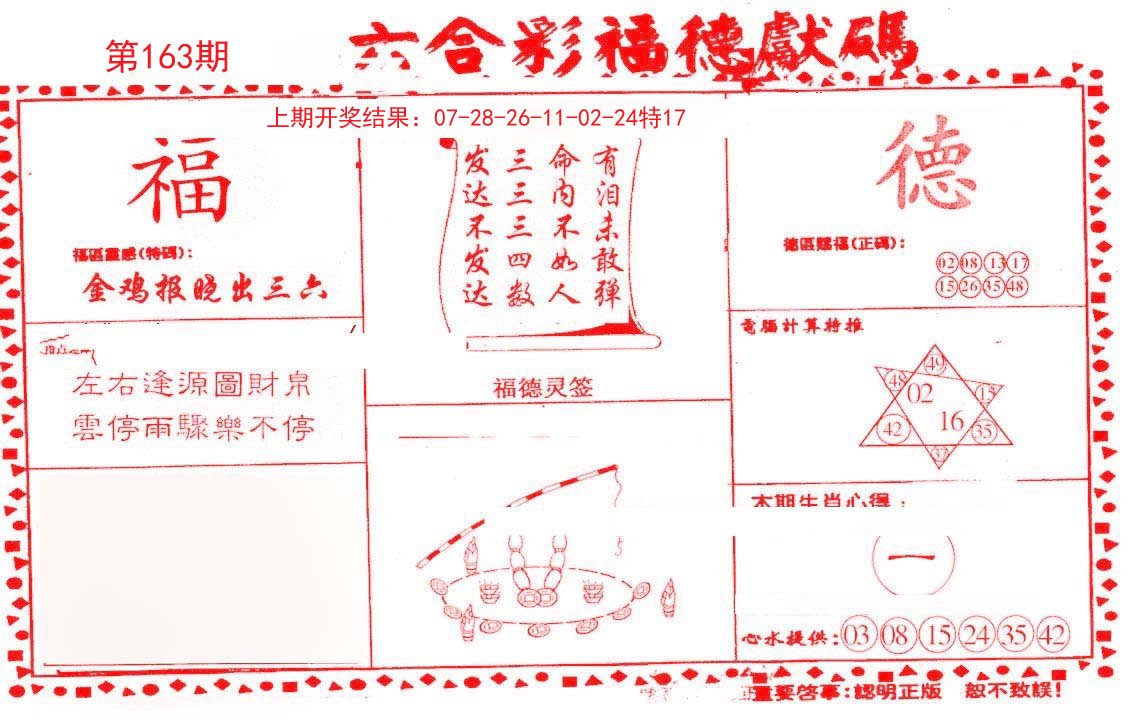 第163期
六合彩福德獻碼
上期开奖结果：07-28-26-11-02-24特17
福
福區靈感(特碼)：
金鸡报晓出三六
左右逢源圖財帛
雲停雨驟樂不停
有泪未敢弹
命内不如人
三三三四数
发达不发达
福德灵签
德
德區賜福(正碼)：
02 08 13 17
15 26 35 48
電腦計算特推
49
48 15
02
16
42 35
37
本期生肖心得：
一
心水提供：03 08 15 24 35 42
重要啓事：認明正版 恕不致誤！